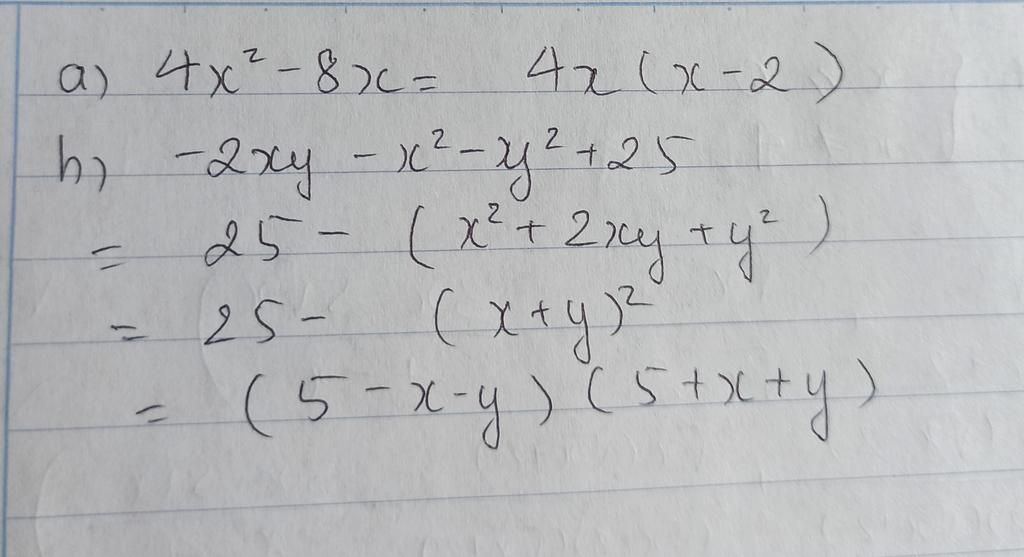 a) 4x² - 8x = 4x (x - 2)
b) -2xy - x² - y² + 25
= 25 - (x² + 2xy + y²)
= 25 - (x + y)²
= (5 - x - y) (5 + x + y)